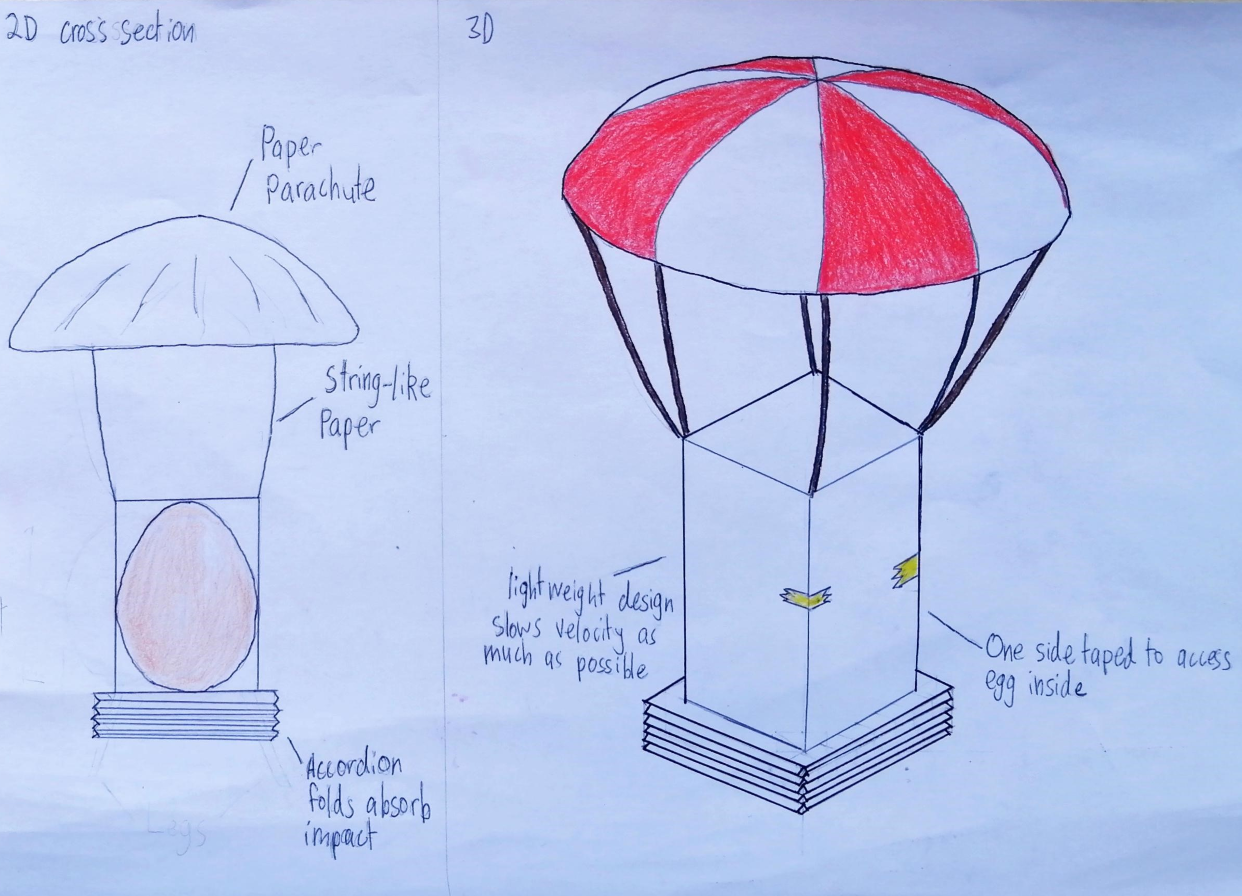 2D cross section
Paper
Parachute
String-like
Paper
Accordion
folds absorb
impact
Legs
3D
lightweight design
slows velocity as
much as possible
One side taped to access
egg inside